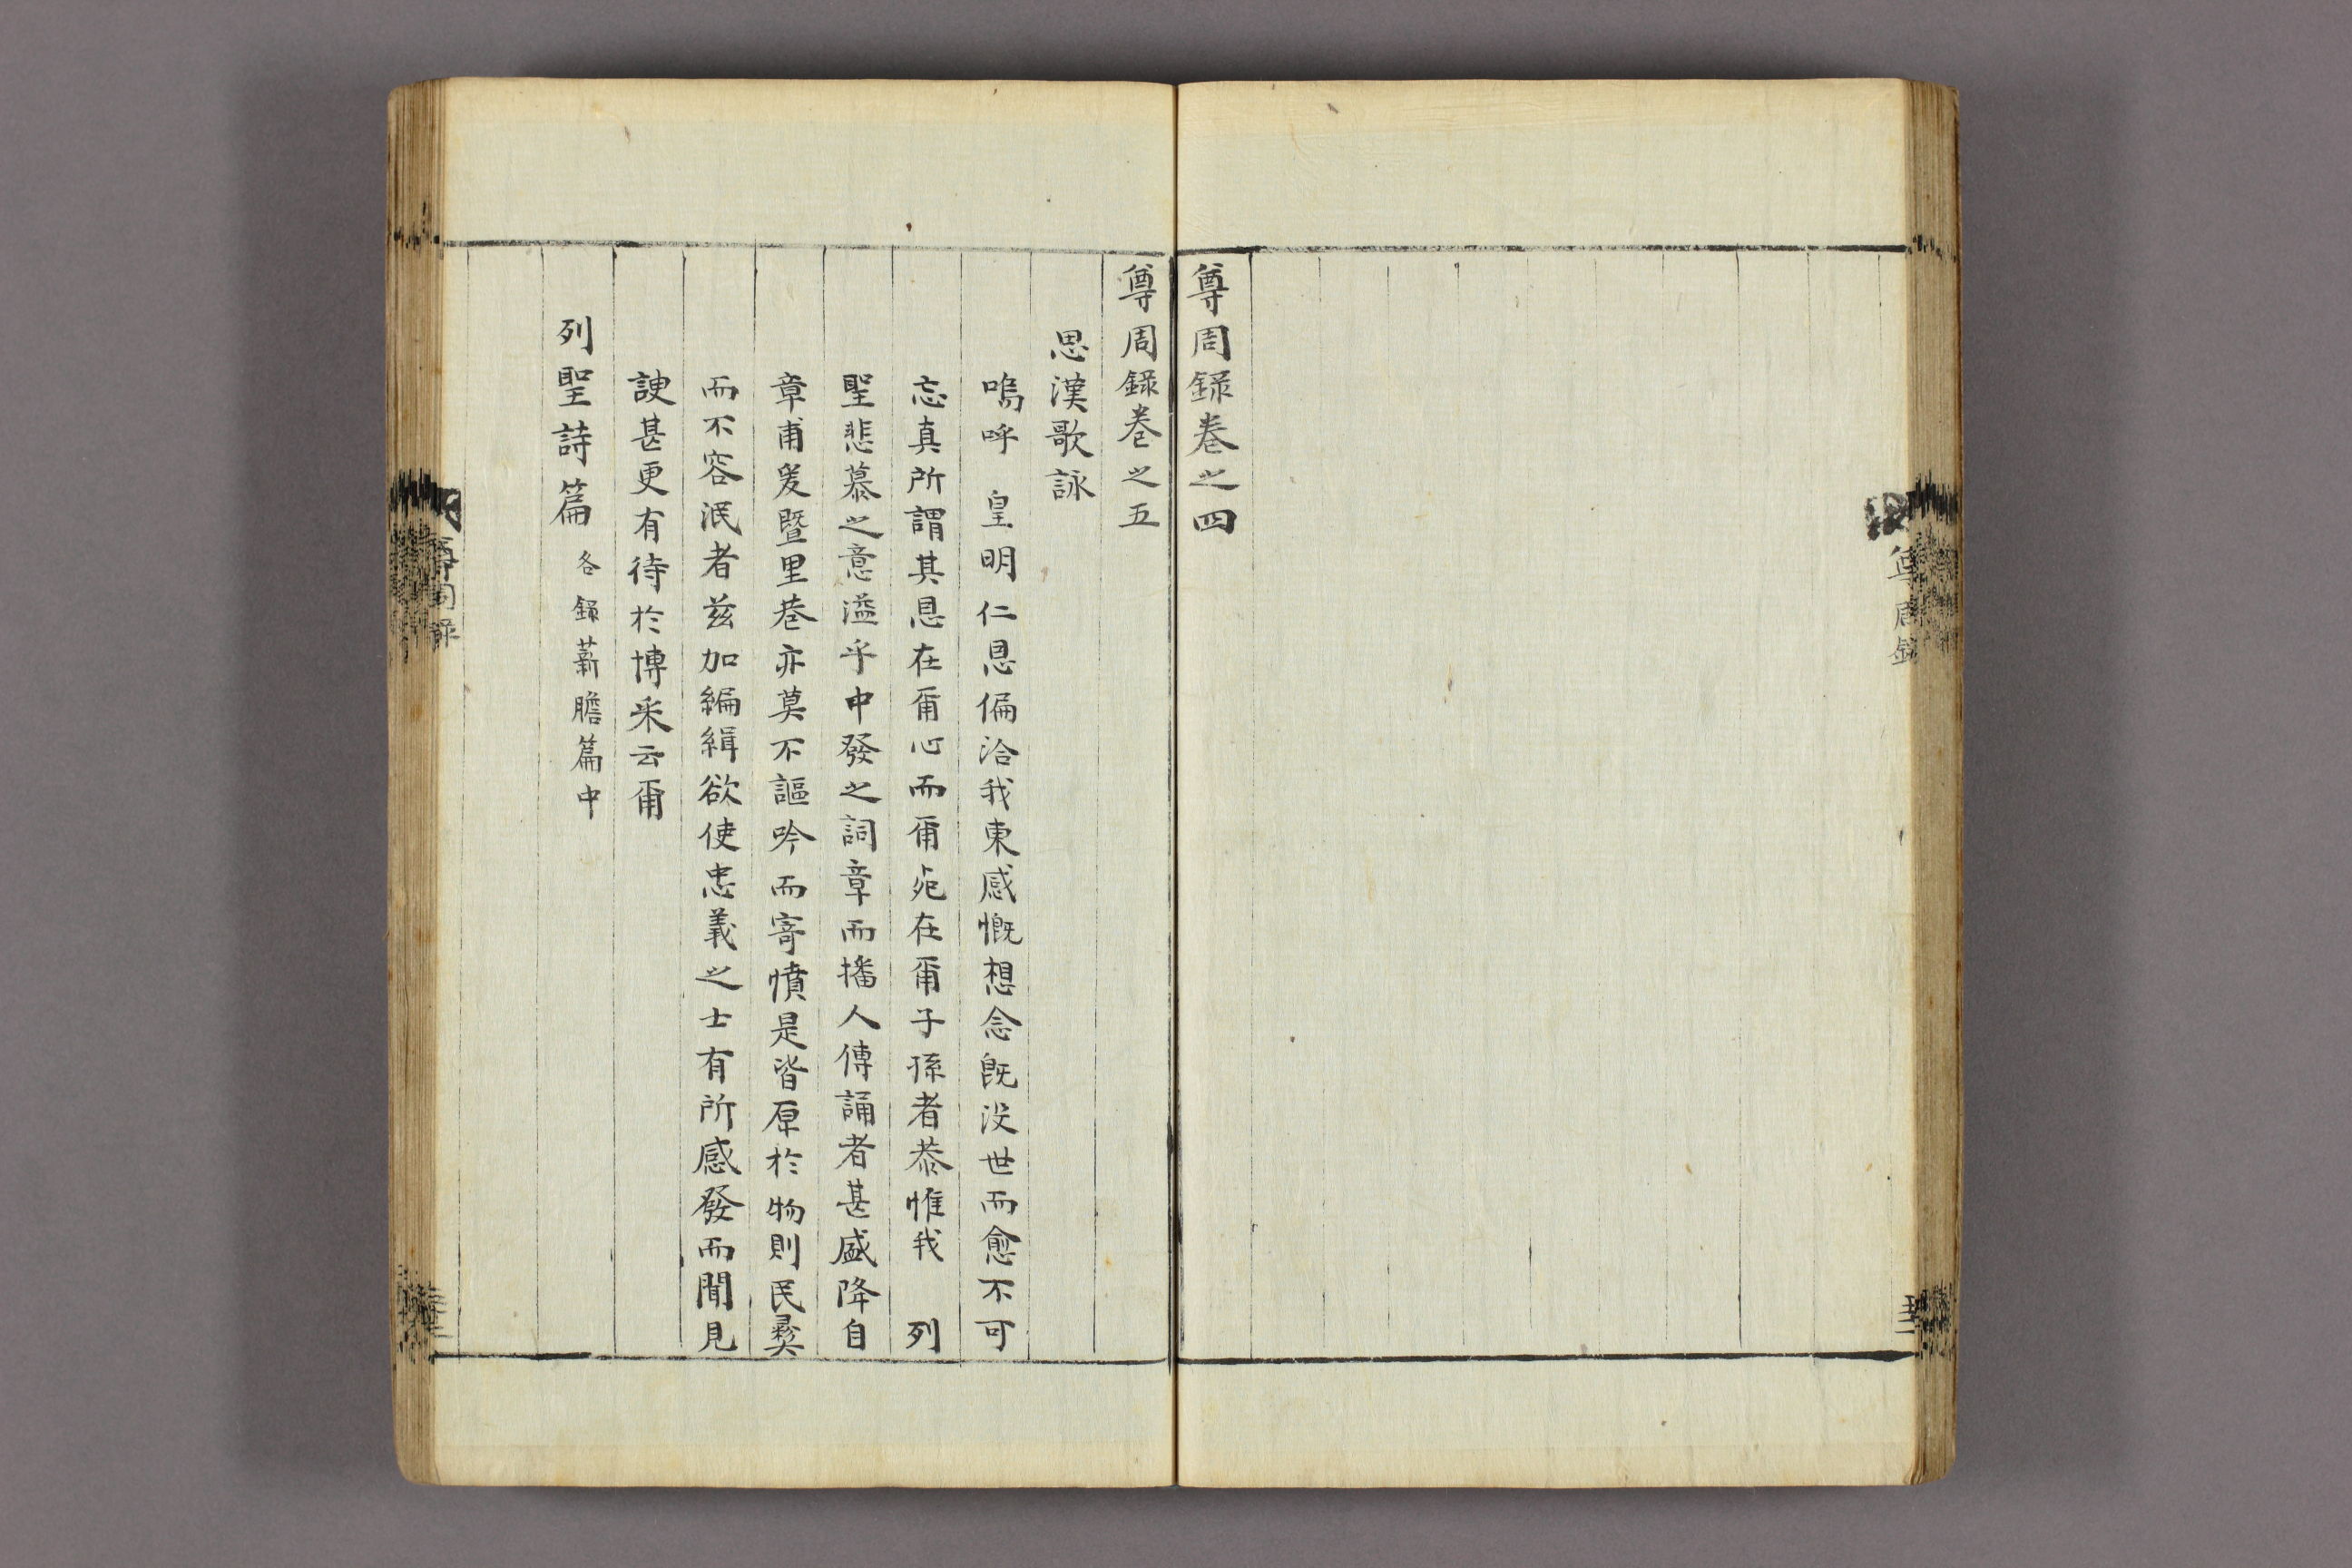 尊周錄
尊周錄卷之四
尊周錄卷之五
思漢歌詠
嗚呼　皇明仁恩偏洽我東感慨想念既沒世而愈不可
忘真所謂其恩在爾心而爾死在爾子孫者恭惟我　列
聖悲慕之意溢乎中發之詞章而播人傳誦者甚盛降自
章甫爰曁里巷亦莫不謳吟而寄憤是皆原於物則民彛
而不容泯者玆加編緝欲使忠義之士有所感發而聞見
諛甚更有待於博采云爾
列聖詩篇 各錄薪膽篇中
尊周錄